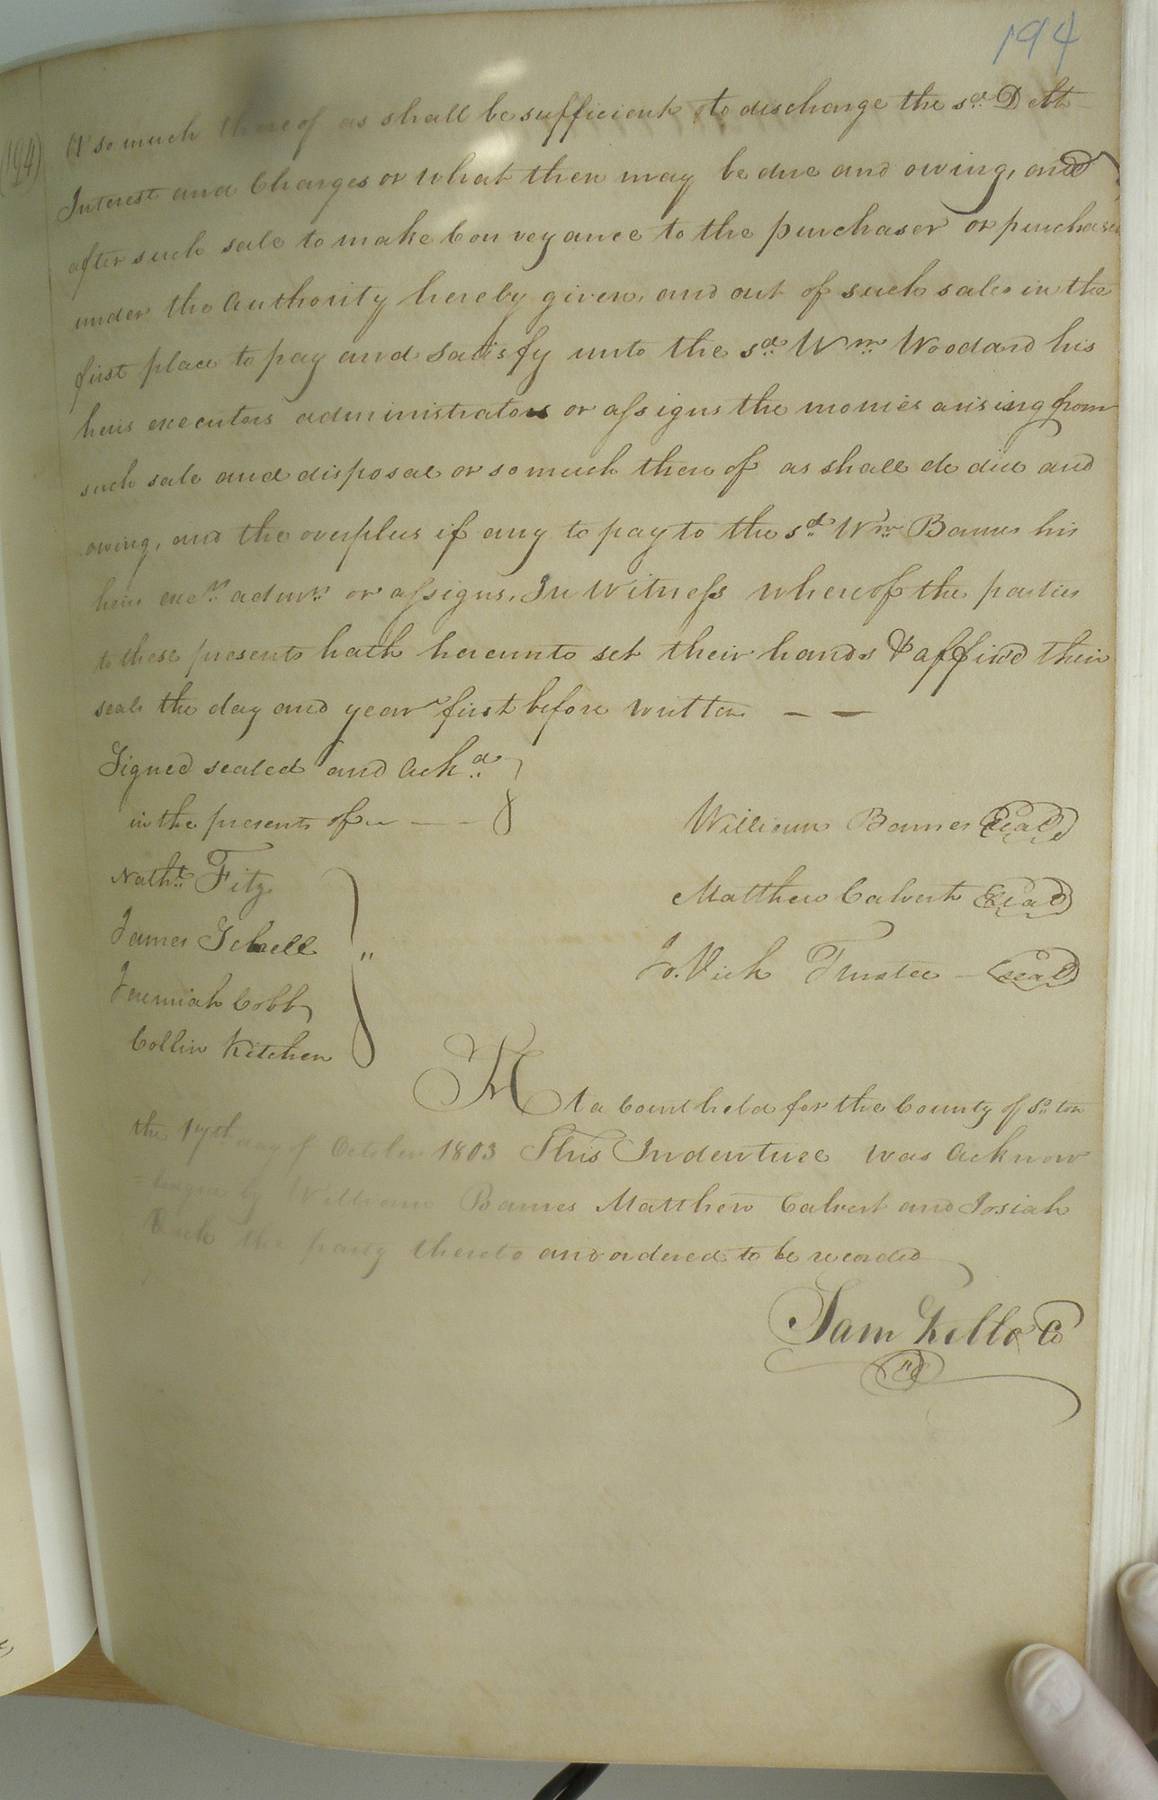 194
(194)
or so much thereof as shall be sufficient to discharge the sd. Debt
Interest and Charges or what then may be due and owing, and
after such sale to make Conveyance to the purchaser or purchasers
under the Authority hereby given, and out of such sales in the
first place to pay and Satisfy unto the sd. Wm. Woodard his
heirs executors administrators or assigns the monies arising from
such sale and disposal or so much thereof as shall de due and
owing, and the overplus if any to pay to the sd. Wm. Barnes his
heirs exers. admrs. or assigns. In Witness whereof the parties
to these presents hath hereunto set their hands & affixed their
seals the day and year first before written — —
Signed sealed and Ackd.
in the presents of — — —
William Barnes Seal
Nathl. Fitz
Matthew Calvert Seal
James
Jo. Vick Trustee — Seal
Jeremiah Cobb
Collin Kitchen
At a Court held for the County of So. ton
the 17th day of October 1803 This Indenture was Acknow
by William Barnes Matthew Calvert and Josiah
Vick the party thereto and ordered to be recorded
Sam Kello C